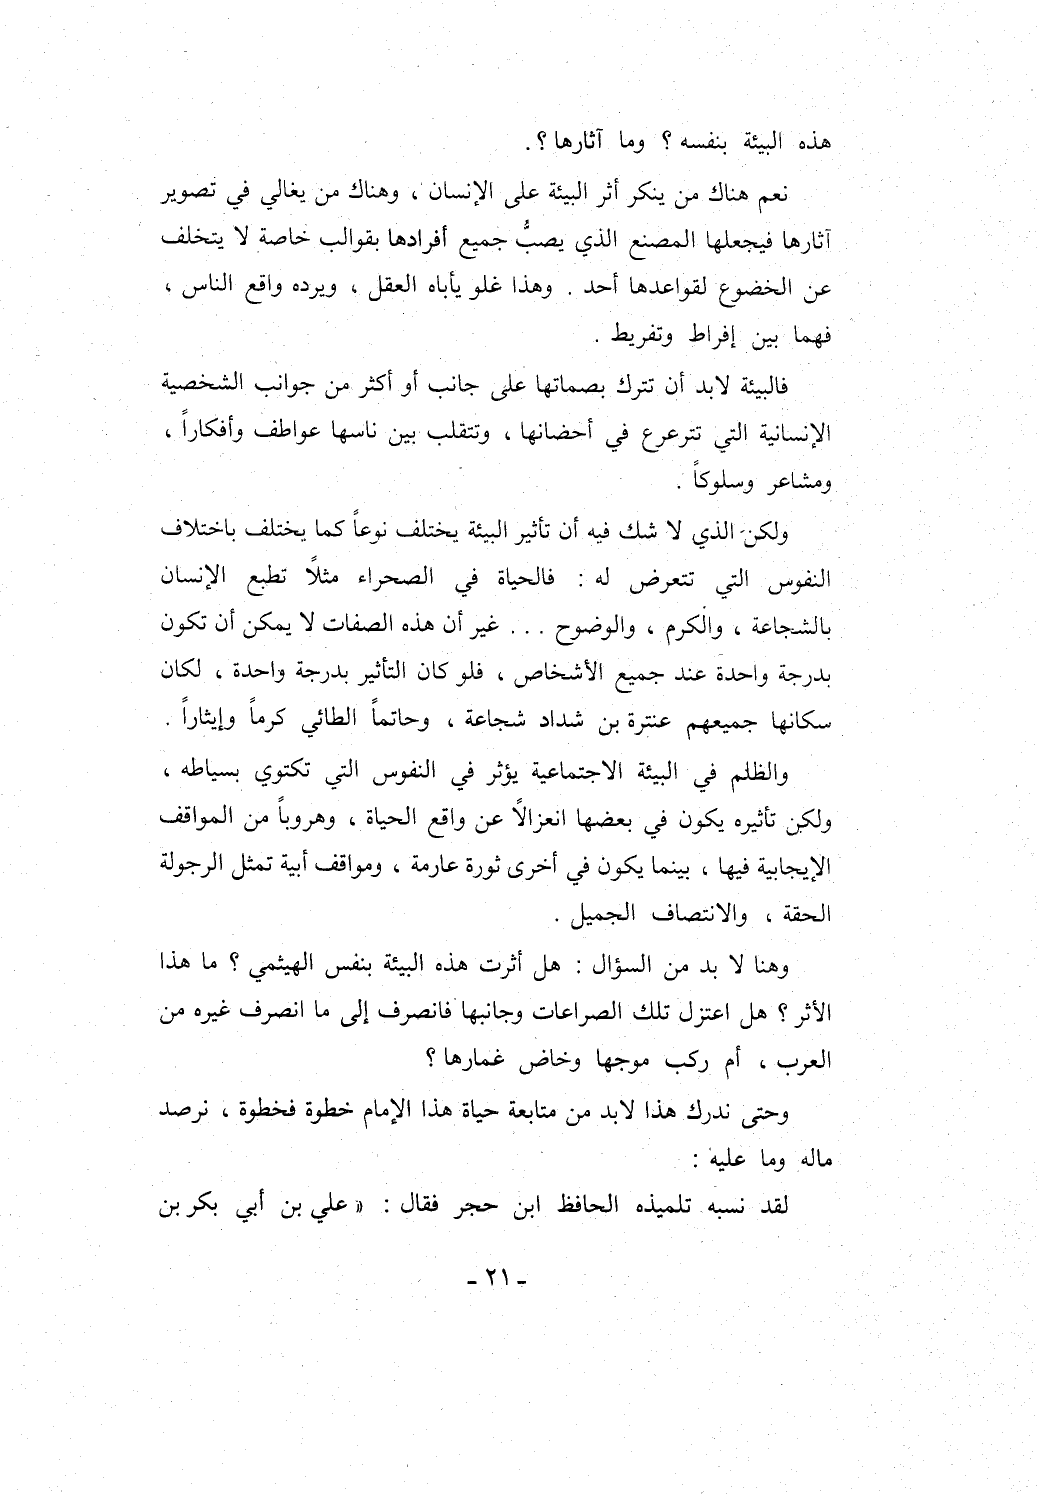 هذه البيئة بنفسه ؟ وما آثارها ؟ .
نعم هناك من ينكر أثر البيئة على الإنسان ، وهناك من يغالي في تصوير
آثارها فيجعلها المصنع الذي يصبُّ جميع أفرادها بقوالب خاصة لا يتخلف
عن الخضوع لقواعدها أحد . وهذا غلو يأباه العقل ، ويرده واقع الناس ،
فهما بين إفراط وتفريط .
فالبيئة لابد أن تترك بصماتها على جانب أو أكثر من جوانب الشخصية
الإنسانية التي تترعرع في أحضانها ، وتتقلب بين ناسها عواطف وأفكاراً ،
ومشاعر وسلوكاً .
ولكن الذي لا شك فيه أن تأثير البيئة يختلف نوعاً كما يختلف باختلاف
النفوس التي تتعرض له : فالحياة في الصحراء مثلاً تطبع الإنسان
بالشجاعة ، والكرم ، والوضوح ... غير أن هذه الصفات لا يمكن أن تكون
بدرجة واحدة عند جميع الأشخاص ، فلو كان التأثير بدرجة واحدة ، لكان
سكانها جميعهم عنترة بن شداد شجاعة ، وحاتماً الطائي كرماً وإيثاراً .
والظلم في البيئة الاجتماعية يؤثر في النفوس التي تكتوي بسياطه ،
ولكن تأثيره يكون في بعضها انعزالاً عن واقع الحياة ، وهروباً من المواقف
الإيجابية فيها ، بينما يكون في أخرى ثورة عارمة ، ومواقف أبية تمثل الرجولة
الحقة ، والانتصاف الجميل .
وهنا لا بد من السؤال : هل أثرت هذه البيئة بنفس الهيثمي ؟ ما هذا
الأثر ؟ هل اعتزل تلك الصراعات وجانبها فانصرف إلى ما انصرف غيره من
العرب ، أم ركب موجها وخاض غمارها ؟
وحتى ندرك هذا لابد من متابعة حياة هذا الإمام خطوة فخطوة ، نرصد
ماله وما عليه :
لقد نسبه تلميذه الحافظ ابن حجر فقال : « علي بن أبي بكر بن
ـ ٢١ ـ